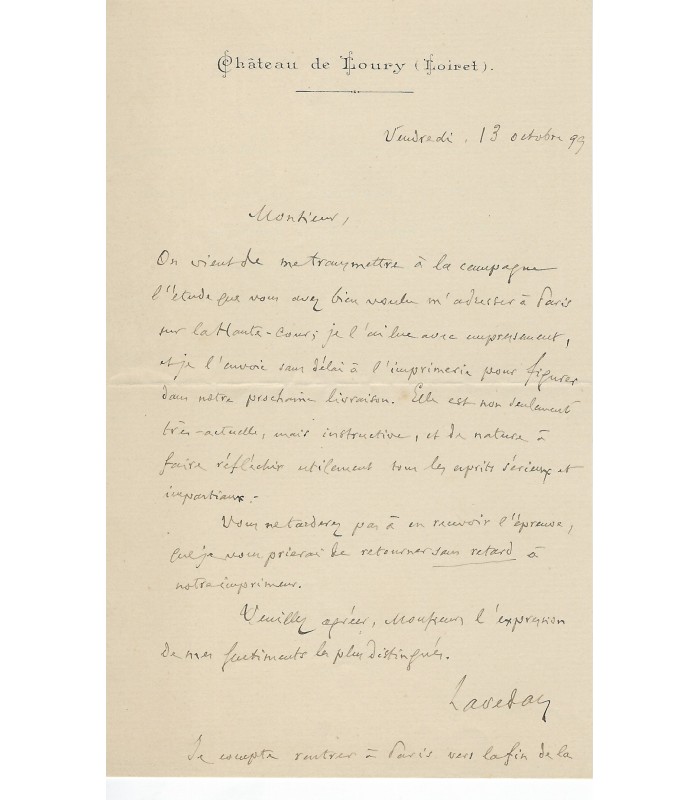 Château de Loury (Loiret).
Vendredi. 13 octobre 99
Monsieur,
On vient de me transmettre à la campagne
l'étude que vous avez bien voulu m'adresser à Paris
sur la Haute-Cour; je l'ai lue avec empressement,
et je l'envoie sans délai à l'imprimerie pour figurer
dans notre prochaine livraison. Elle est non seulement
très-actuelle, mais instructive, et de nature à
faire réfléchir utilement tous les esprits sérieux et
impartiaux.-
Vous ne tarderez pas à en recevoir l'épreuve,
que je vous prierai de retourner sans retard à
notre imprimeur.
Veuillez agréer, Monsieur l'expression
de mes sentiments les plus distingués.
Lavedan
Je compte rentrer à Paris vers la fin de la